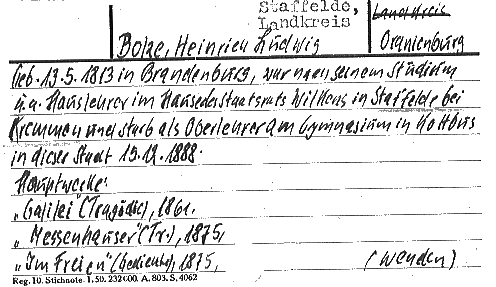 Staffelde,
Landkreis
Landkreis
Oranienburg
Bolze, Heinrich Ludwig
Geb. 13.5.1813 in Brandenburg, war nach seinem Studium
u.a. Hauslehrer im Hause des Staatsrats Wilkens in Staffelde bei
Kremmen und starb als Oberlehrer am Gymnasium in Kottbus
in dieser Stadt 15.12.1888.
Hauptwerke:
„Galilei" (Tragödie), 1861.
„Messenhauser" (Tr.), 1875,
„Im Freien" 1875,
(Wenden)
Reg. 10. Stichnote. 1. 50. 232 600. A. 803. S. 4062